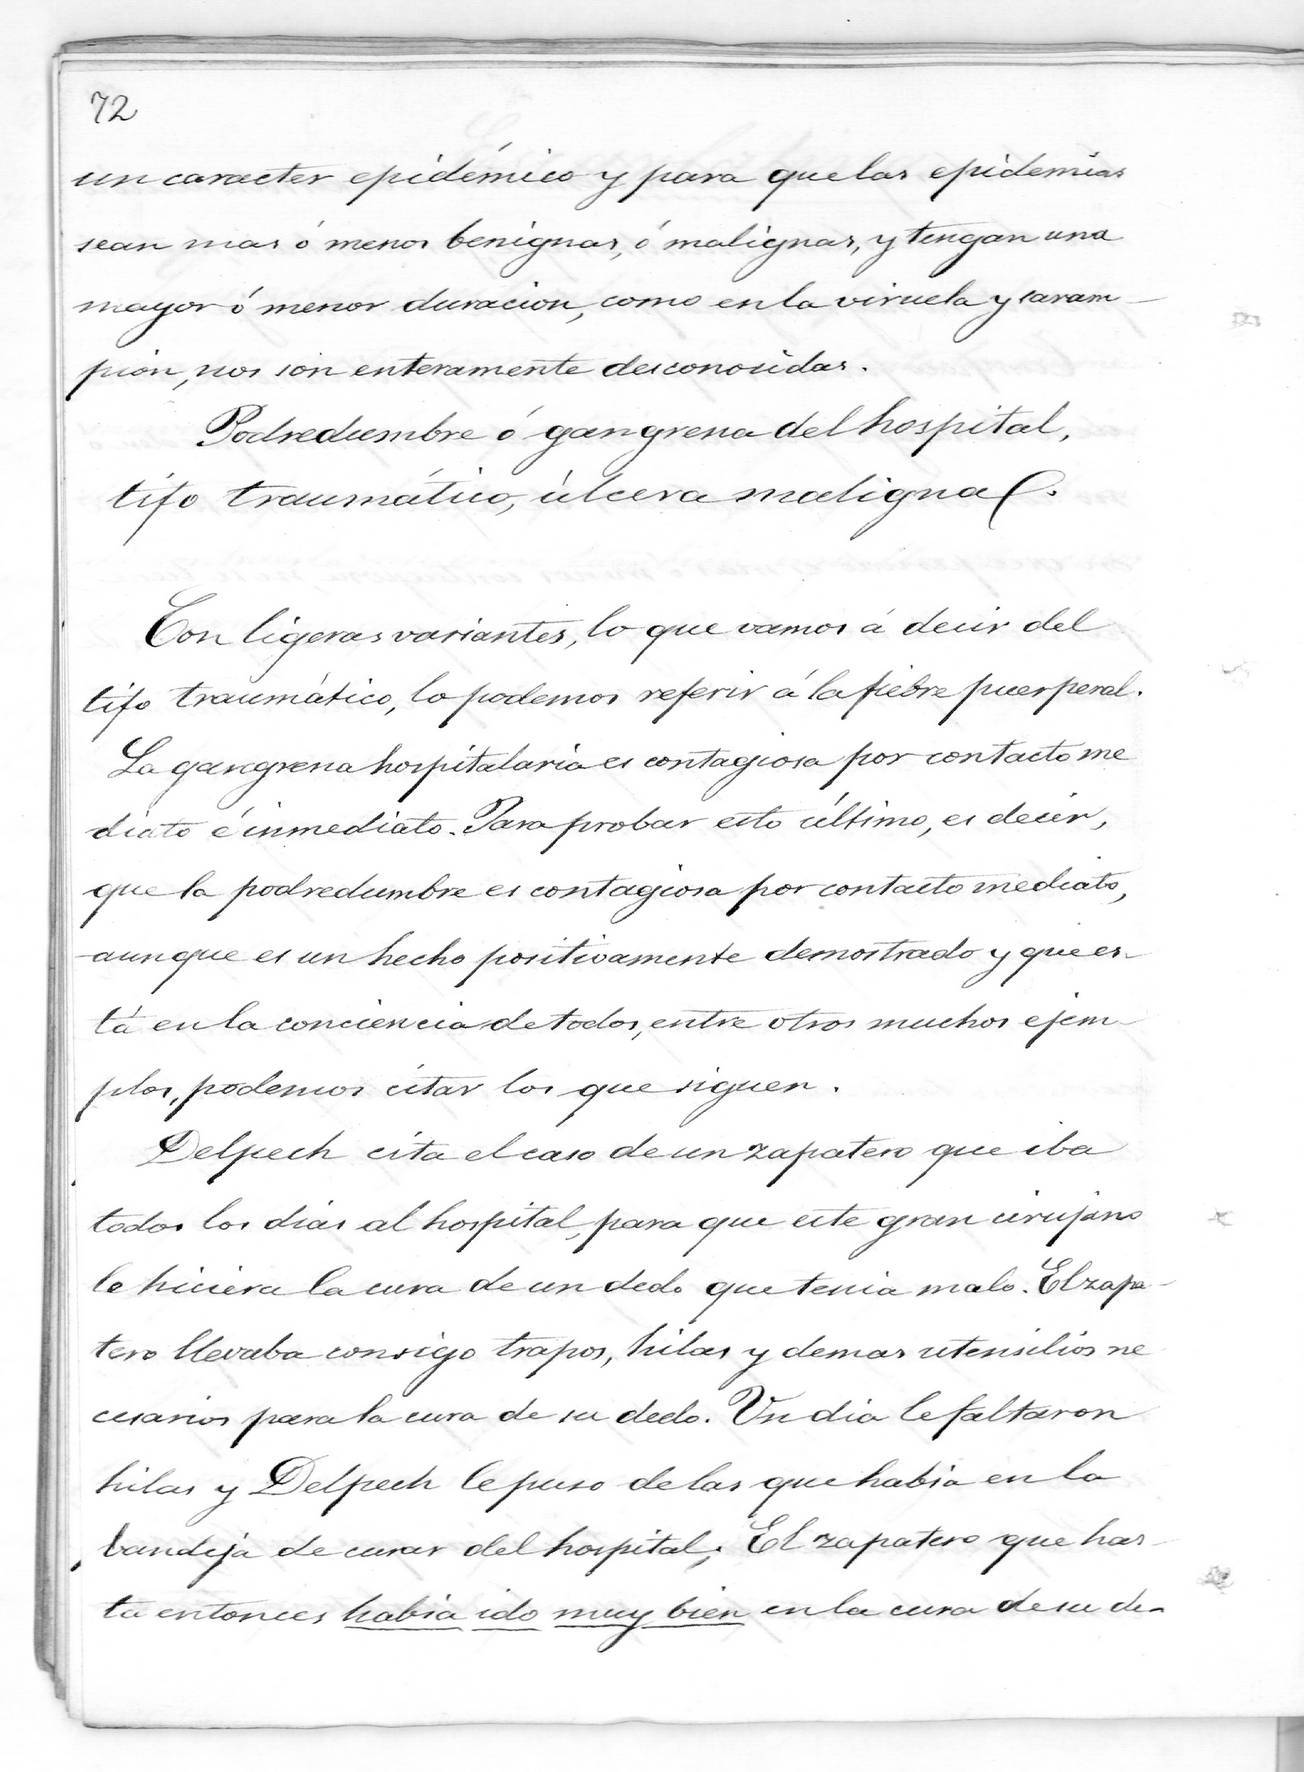 72
un caracter epidémico y para que las epidemias
sean mas ó menos benignas, ó malignas, y tengan una
mayor ó menor duracion, como en la viruela y saram-
pion, nos son enteramente desconosidas.
Podredumbre ó gangrena del hospital,
tifo traumático, úlcera maligna.
Con ligeras variantes, lo que vamos á decir del
tifo traumático, lo podemos referir á la fiebre puerperal.
La gangrena hospitalaria es contagiosa por contacto me
diato é inmediato. Para probar esto último, es decir,
que la podredumbre es contagiosa por contacto mediato,
aunque es un hecho positivamente demostrado y que es-
tá en la conciencia de todos, entre otros muchos ejem-
plos, podemos citar los que siguen.
Delpech cita el caso de un zapatero que iba
todos los dias al hospital, para que este gran cirujano
le hiciera la cura de un dedo que tenia malo. El zapa-
tero llevaba consigo trapos, hilas y demas utensilios ne
cesarios para la cura de su dedo. Un dia le faltaron
hilas y Delpech le puso de las que habia en la
bandeja de curar del hospital; El zapatero que has-
ta entonces habia ido muy bien en la cura de su de-